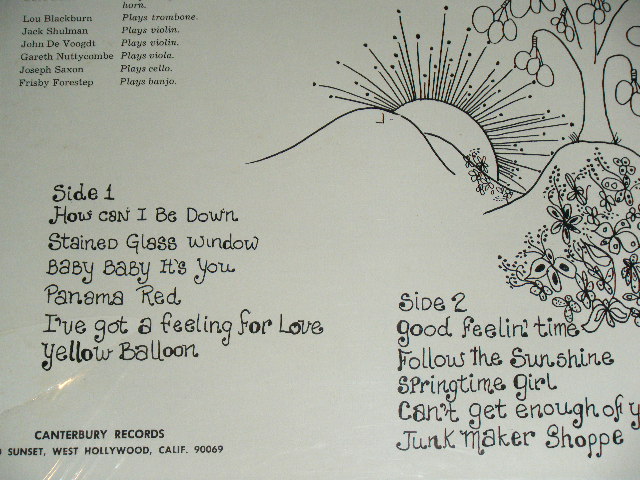 horn.
Lou Blackburn Plays trombone.
Jack Shulman Plays violin.
John De Voogdt Plays violin.
Gareth Nuttycombe Plays viola.
Joseph Saxon Plays cello.
Frisby Forestep Plays banjo.
Side 1
How can I Be Down
Stained Glass window
Baby Baby It's You
Panama Red
I've got a feeling for Love
Yellow Balloon
Side 2
good feelin' time
Follow the Sunshine
Springtime girl
Can't get enough of y
Junk Maker Shoppe
CANTERBURY RECORDS
SUNSET, WEST HOLLYWOOD, CALIF. 90069